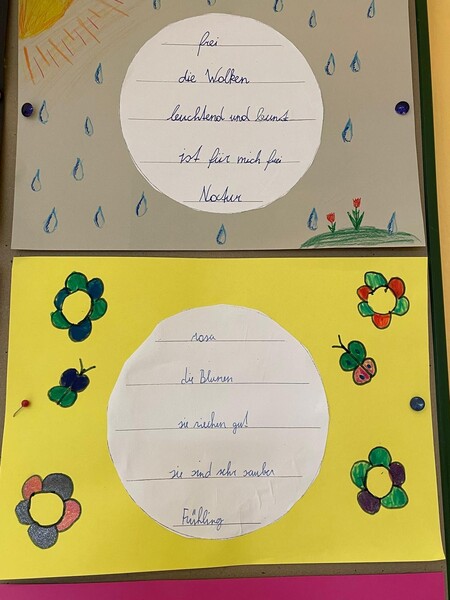 frei
die Wolken
leuchtend und bunt
ist für mich frei
Noctur
rosa
die Blumen
sie riechen gut
sie sind sehr sauber
Frühling